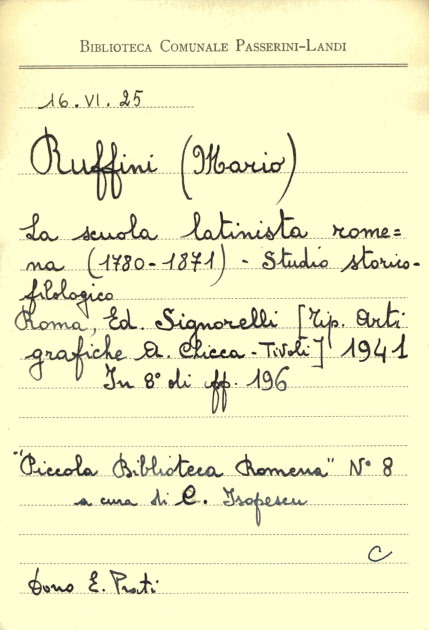 BIBLIOTECA COMUNALE PASSERINI-LANDI
16.VI.25
Ruffini (Mario)
La scuola latinista rome=
na (1780-1871) - Studio storico-
filologico
Roma, Ed. Signorelli [Tip. Arti
grafiche A. Chicca - Tivoli] 1941
In 8° di pp. 196
"Piccola Biblioteca Romena" N° 8
a cura di C. Isopescu
C
Dono E. Prati